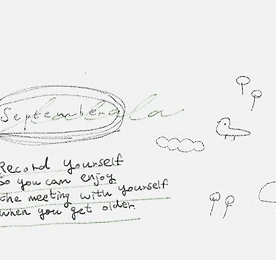 September
Record yourself
so you can enjoy
the meeting with yourself
when you get older